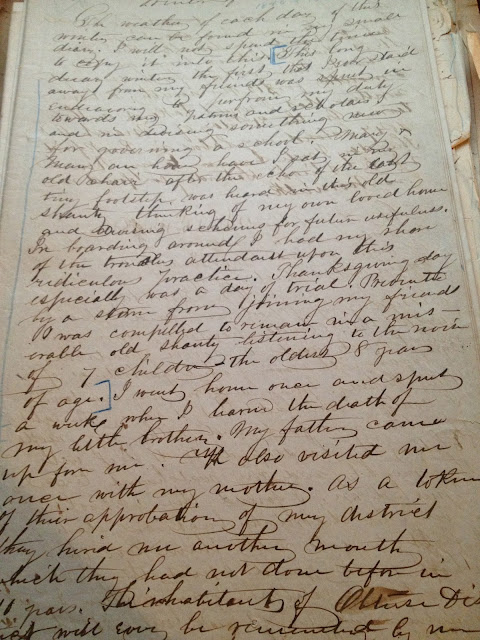 The weather of each day of this
winter can be found in my small
diary. I will not spend the time
to copy it into this. This long
dreary winter the first that I ever staid
away from my friends was spent in
endeavoring to perform my duty
towards my patrons and scholars
and in devising something new
for governing a school. Many &
Many an hour have I sat in my
old chair after the echo of the last
tiny footstep was heard in this old
shanty thinking of my own loved home
and devising schemes for future usefulness.
In boarding around I had my share
of the troubles attendant upon this
ridiculous practice. Thanksgiving day
especially was a day of trial. Prevented
by a storm from joining my friends
I was compelled to remain in a mis-
erable old shanty listening to the noise
of 7 children the oldest 8 years
of age. I went home once and spent
a week, when I learned the death of
my little brother. My father came
up for me. He also visited me
once with my mother. As a token
of their approbation of my district
they hired me another month
which they had not done before in
years. The inhabitants of Obtuse Dis
will ever be remembered by me